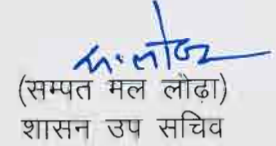 स. लोढ़ा
(सम्पत मल लोढ़ा)
शासन उप सचिव